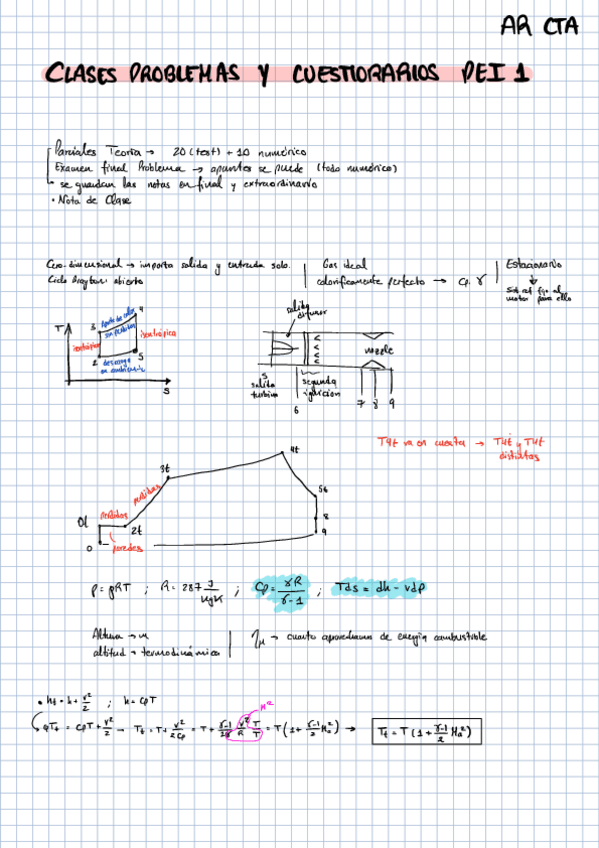 AR CTA
CLASES PROBLEMAS Y CUESTIORARIOS PEI 1
Parciales Teoría → 20 (test) + 10 numérico
Examen final Problema → apuntes se puede (todo numérico)
se guardan las notas en final y extraordinario
• Nota de Clase
Cero-dimensional → importa salida y entrada solo.
Ciclo Brayton: abierto
Gas ideal
calorificamente perfecto → Cp, γ
Estacionario
Sist ref fijo al
motor para ello
T
3
4
2
5
S
Aporte de calor
sin perdidas
isentrópica
isentrópica
descarga
en ambiente
salida
difusor
nozzle
5
salida
turbina
segunda
ignicion
6
7 8 9
T4t va en cuenta → T4t y T4t
distintas
0t
0
2t
3t
4t
5t
8
9
perdidas
perdidas
paredes
p = ρRT ; R = 287 J/kgK ; Cp = γR/γ-1 ; Tds = dh - vdp
Altura → m
altitud → termodinámica
η → cuanto aprovechamos de energía combustible
• ht = h + v²/2 ; h = cpT
cpTt = cpT + v²/2 → Tt = T + v²/2cp = T + γ-1/2γ v²/R T/T = T(1 + γ-1/2 M₀²) → Tt = T(1 + γ-1/2 M₀²)
M²